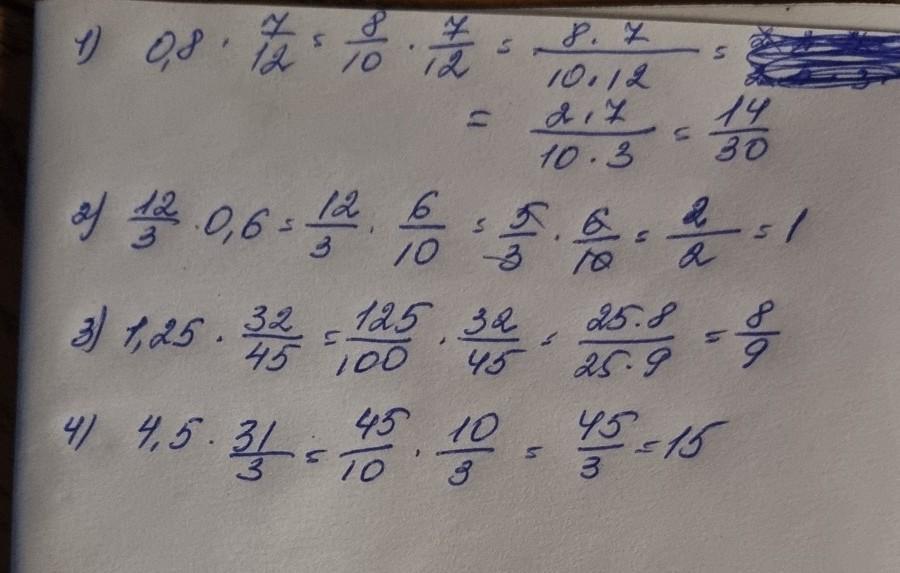 1) 0,8 · 7/12 = 8/10 · 7/12 = 8 · 7/10 · 12 =
= 2 · 7/10 · 3 = 14/30
2) 12/3 · 0,6 = 12/3 · 6/10 = 5/3 · 6/10 = 2/2 = 1
3) 1,25 · 32/45 = 125/100 · 32/45 = 25 · 8/25 · 9 = 8/9
4) 4,5 · 31/3 = 45/10 · 10/3 = 45/3 = 15